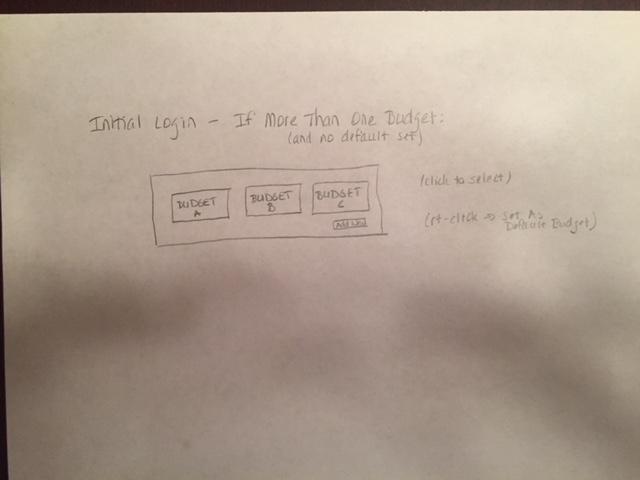 Initial Login - If More Than One Budget:
(and no default set)
BUDGET A
BUDGET B
BUDGET C
Add New
(click to select)
(rt-click → Set As
Default Budget)